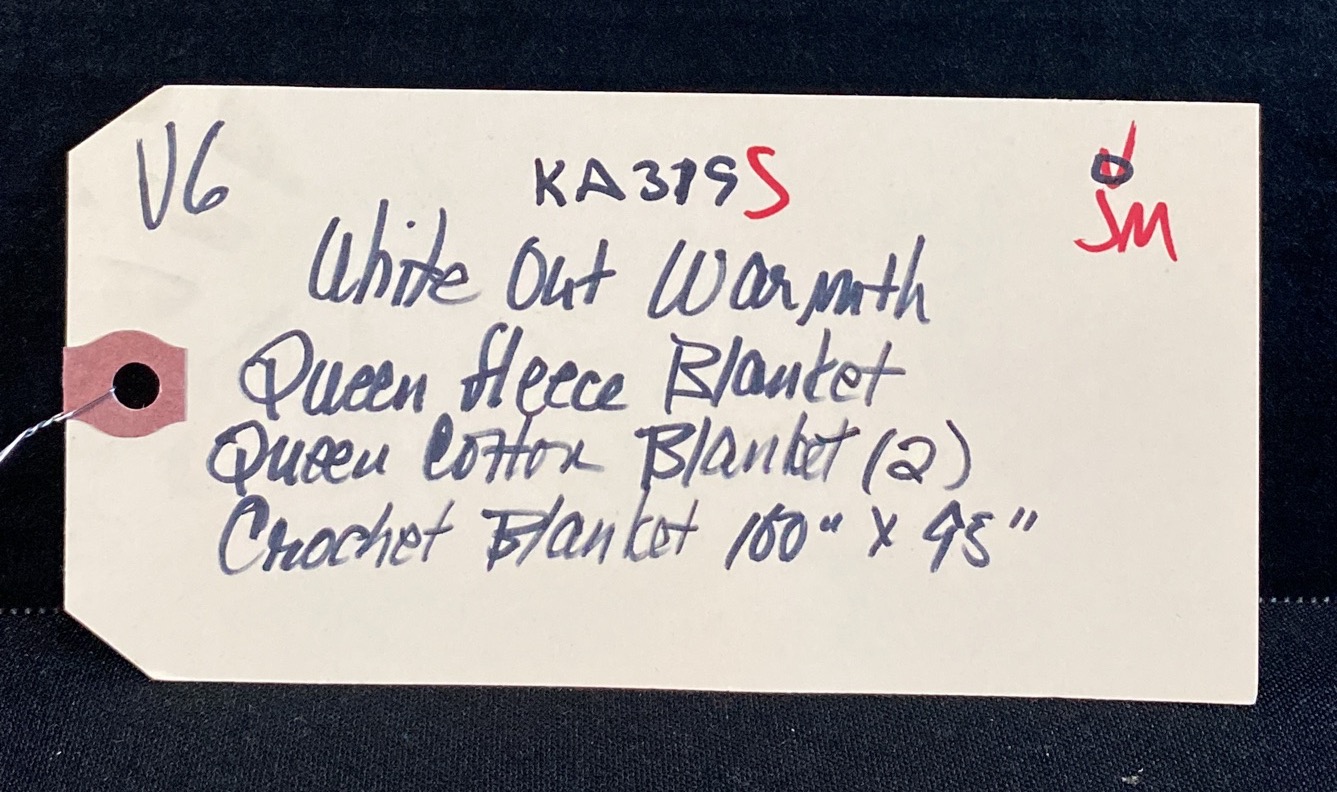 V6 KA379S
JM
White Out Warmth
Queen fleece Blanket
Queen Cotton Blanket (2)
Crochet Blanket 100" X 95"